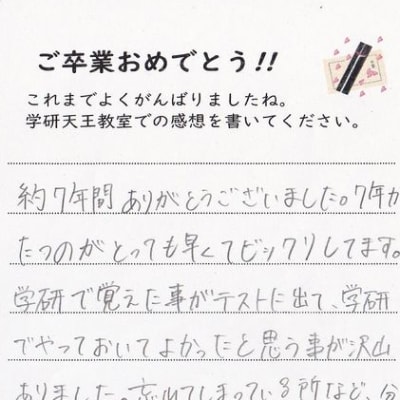 ご卒業おめでとう!!
これまでよくがんばりましたね。
学研天王教室での感想を書いてください。
約7年間ありがとうございました。7年が
たつのがとっても早くてビックリしてます。
学研で覚えた事がテストに出て、学研
でやっておいてよかったと思う事が沢山
ありました。忘れてしまっている所など、分